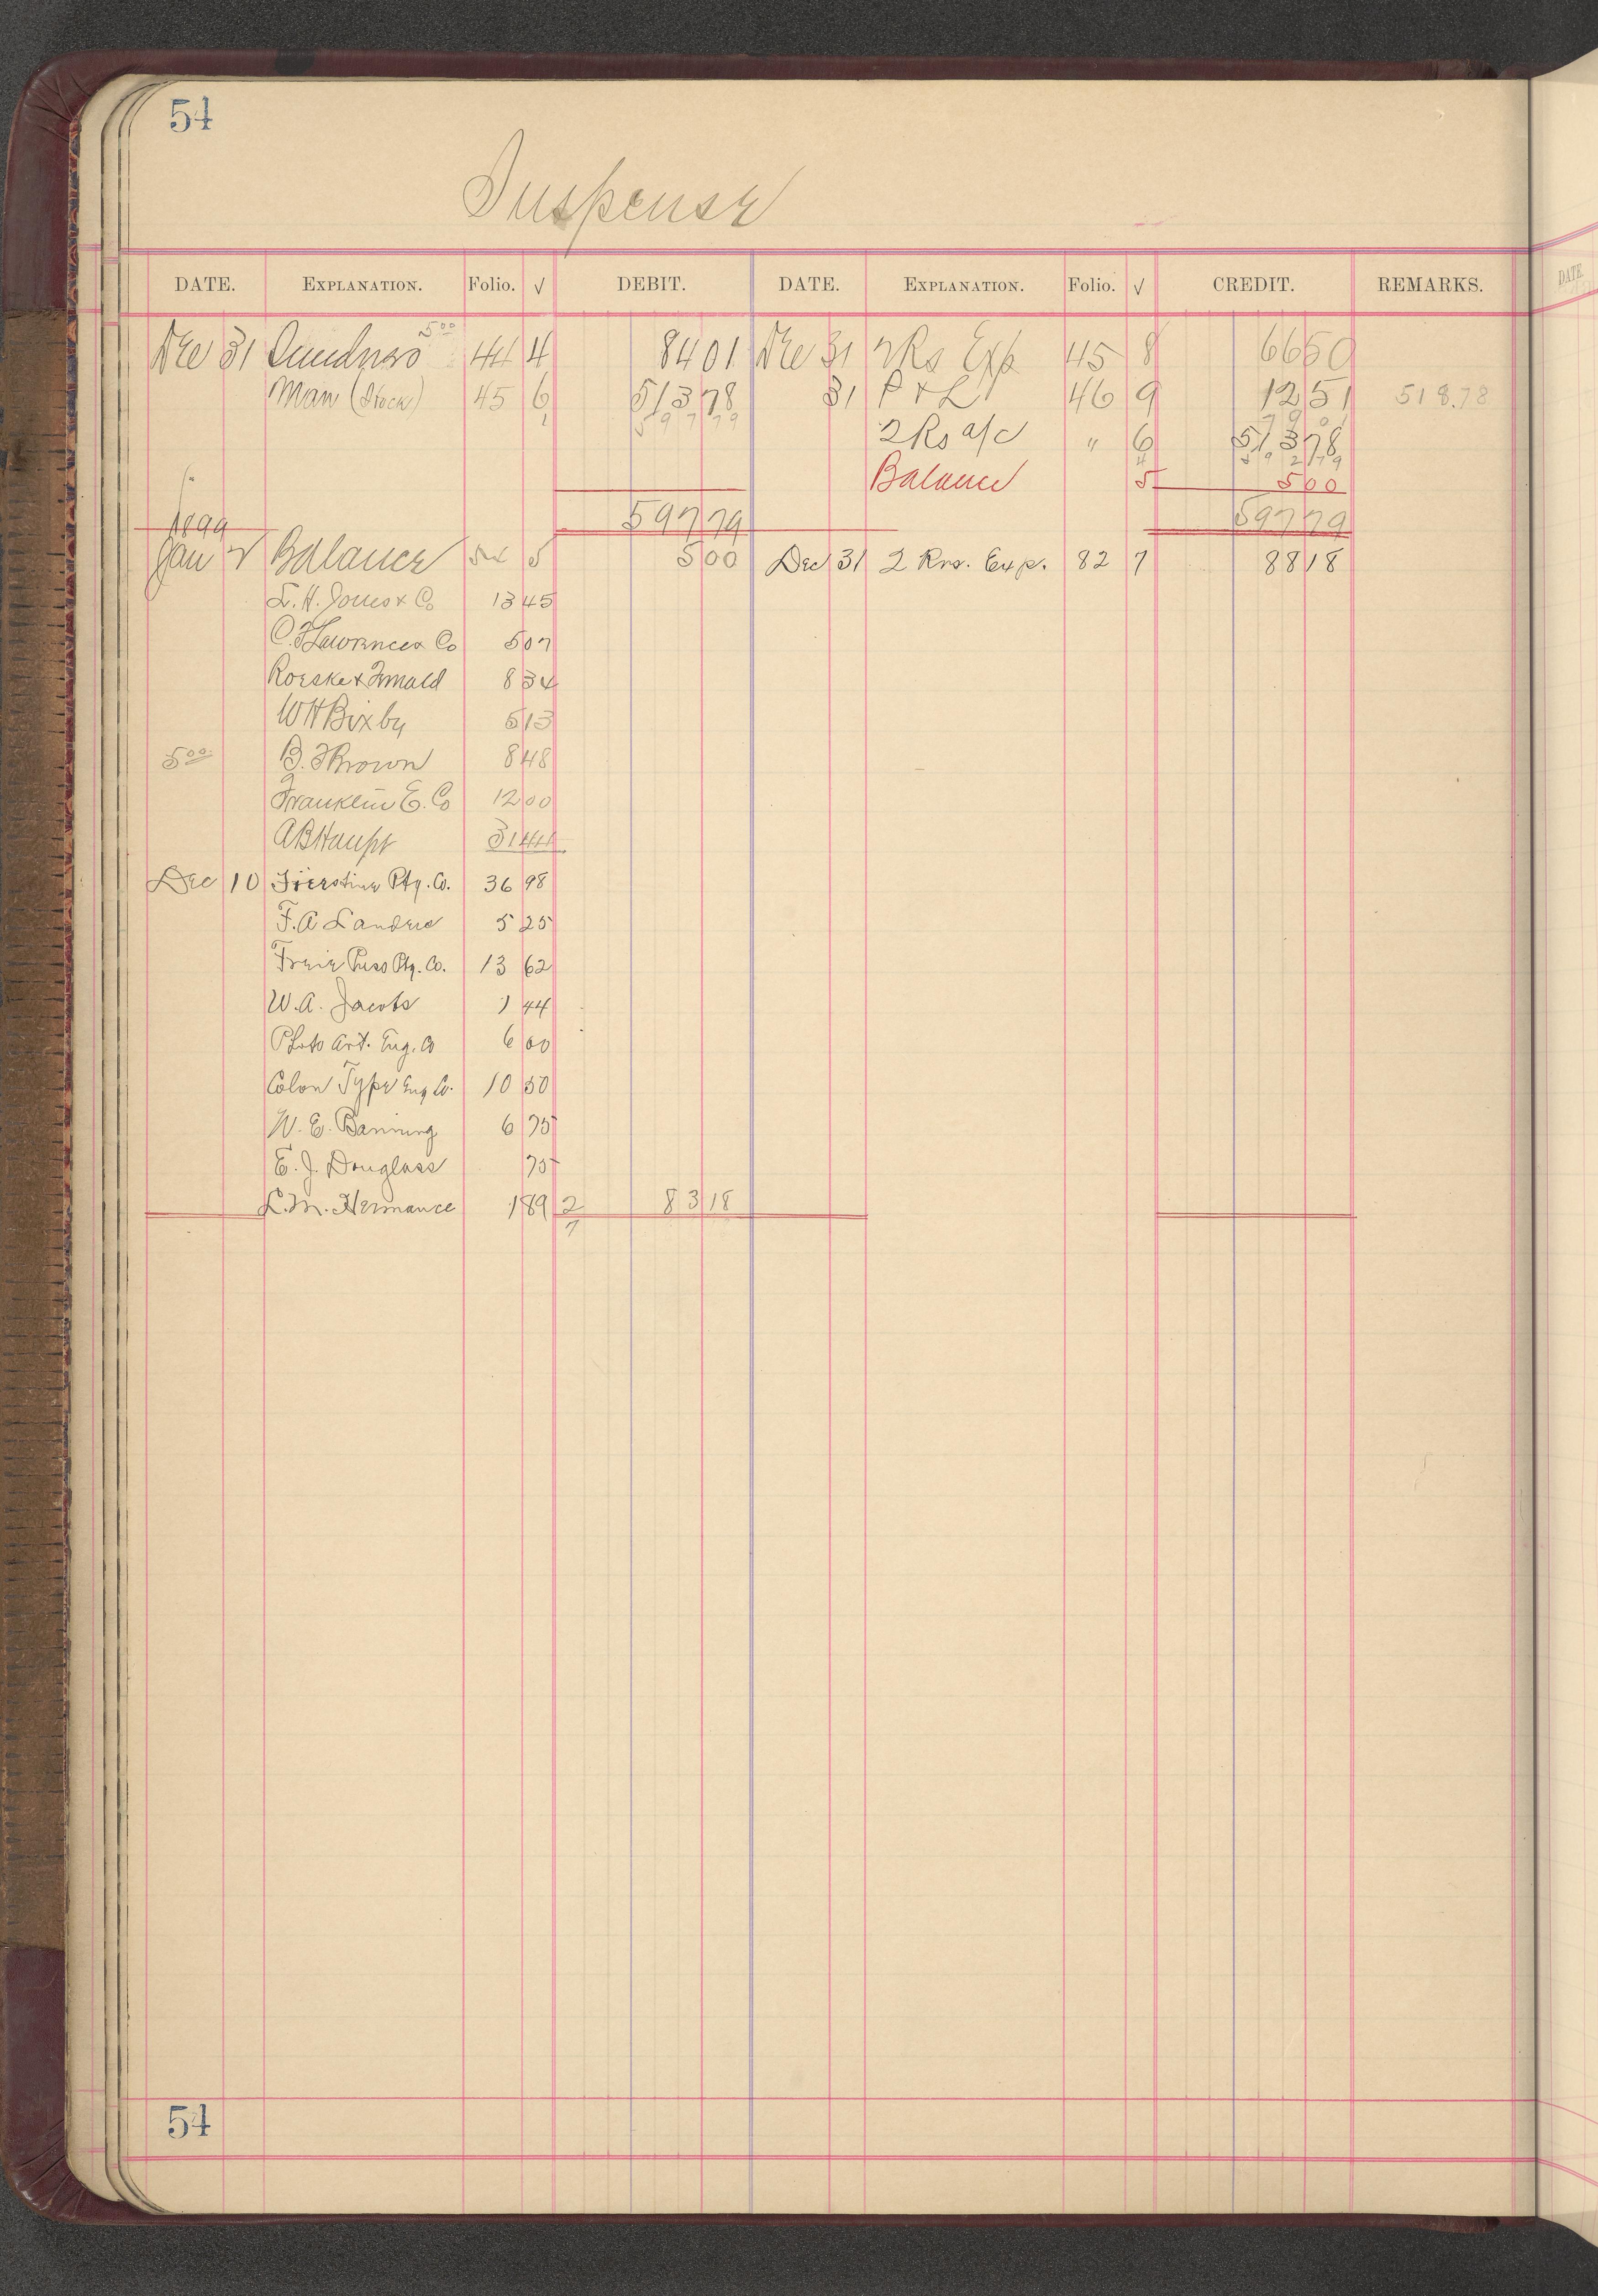 54
Suspense
DATE. EXPLANATION. Folio. √ DEBIT. DATE. EXPLANATION. Folio. √ CREDIT. REMARKS.
Dec 31 Sundries 5 00 44 4 84 01 Dec 31 2Rs Exp 45 8 66 50
Man (Stock) 45 6 513 78 31 P & L 46 9 12 51 518.78
2 Rs a/c " 6 513 78
Balance 5 5 00
597 79 597 79
1899
Jan Balance 5 5 00 Dec 31 2 Rrs. Exp. 82 7 88 18
L. H. Jones & Co 13 45
C. F. Lawrence & Co 5 07
Roeske & 8 34
W H Bixby 5 13
5 00 B. F Brown 8 48
Franklin E. Co 12 00
A B Haupt 31 44
Dec 10 Ptg. Co. 36 98
F. A Landrie 5 25
Free Press Ptg. Co. 13 62
W. A. Jacobs 1 44
Photo Art. Eng. Co 6 00
Colon Type Eng Co. 10 50
W. E. Banning 6 75
E. J. Douglass 75
L. M. Hermance 1 89 2 83 18
7
54